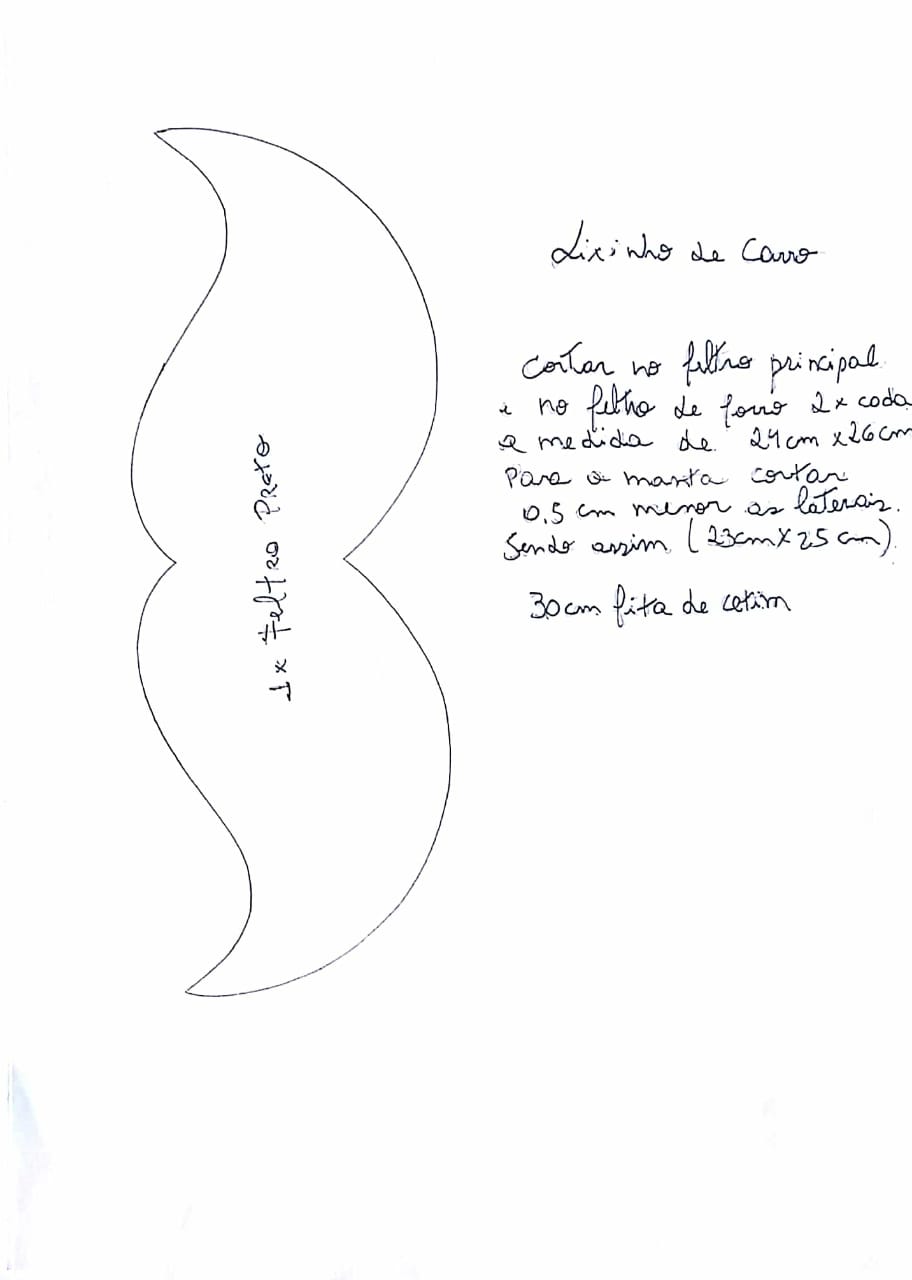 Lixinho de Carro
Cortar no feltro principal
e no feltro de forro 2x cada
a medida de 24cm x 26cm
Para a manta cortar
0,5 cm menor as laterais.
Sendo assim (23cm X 25 cm)
30cm fita de cetim
1x Feltro Preto